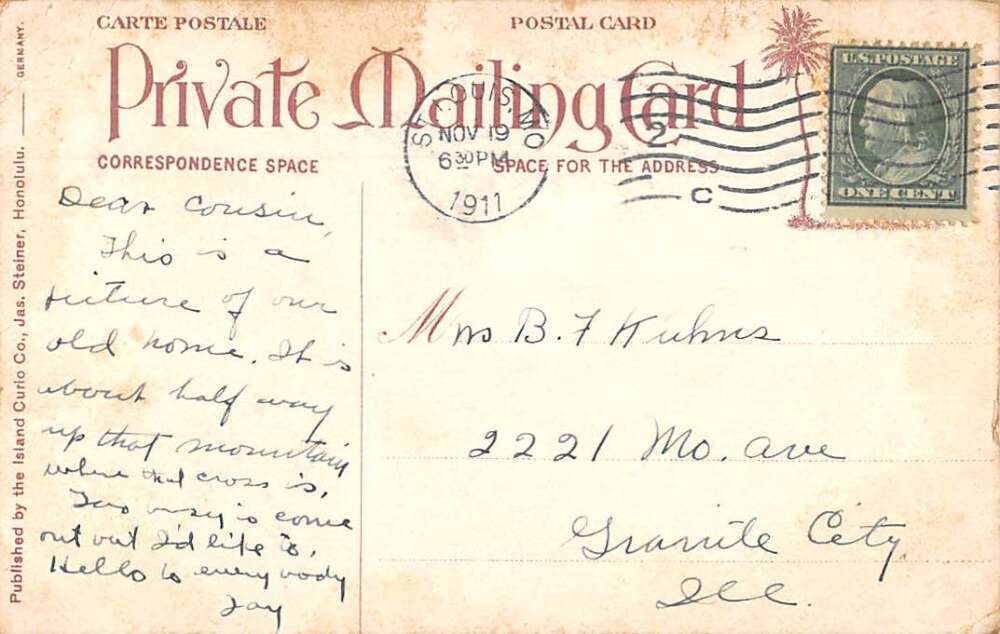 CARTE POSTALE
POSTAL CARD
Private Mailing Card
CORRESPONDENCE SPACE
SPACE FOR THE ADDRESS
ST. LOUIS, MO
NOV 19
6 30 PM
1911
2
C
U.S. POSTAGE
ONE CENT
Published by the Island Curio Co., Jas. Steiner, Honolulu. GERMANY.
Dear Cousin,
This is a
picture of our
old home. It is
about half way
up that mountain
where that cross is.
Too busy to come
out but I'd like to.
Hello to every body
Jay
Mrs B. F Kuhns
2221 Mo. ave
Granite City
Ill.